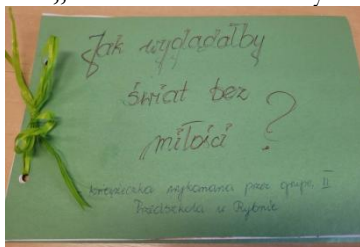 Jak wyglądałby
świat bez
miłości ?
książeczka wykonana przez grupę II
Przedszkola w Rybnie